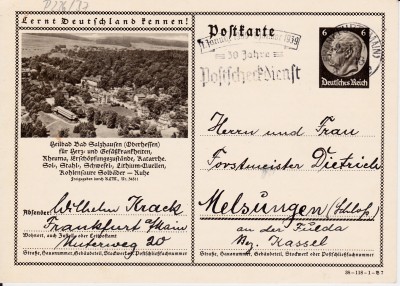 Lernt Deutschland kennen!
Postkarte
1. Januar 1939
30 Jahre
Postscheckdienst
6 6
Deutsches Reich
Heilbad Bad Salzhausen (Oberhessen)
für Herz- und Gefäßkrankheiten,
Rheuma, Erschöpfungszustände, Katarrhe.
Sol-, Stahl-, Schwefel-, Lithium-Quellen,
Kohlensaure Solbäder — Ruhe
Absender: Wilhelm Krack
Frankfurt a/Main
Wohnort, auch Zustell- oder Leitpostamt
Unterweg 20
Straße, Hausnummer, Gebäudeteil, Stockwerk od. Postschließfachnummer
Herrn und Frau
Forstmeister Dietrich
Melsungen (Schloß)
an der Fulda
Bez. Kassel
Straße, Hausnummer, Gebäudeteil, Stockwerk oder Postschließfachnummer